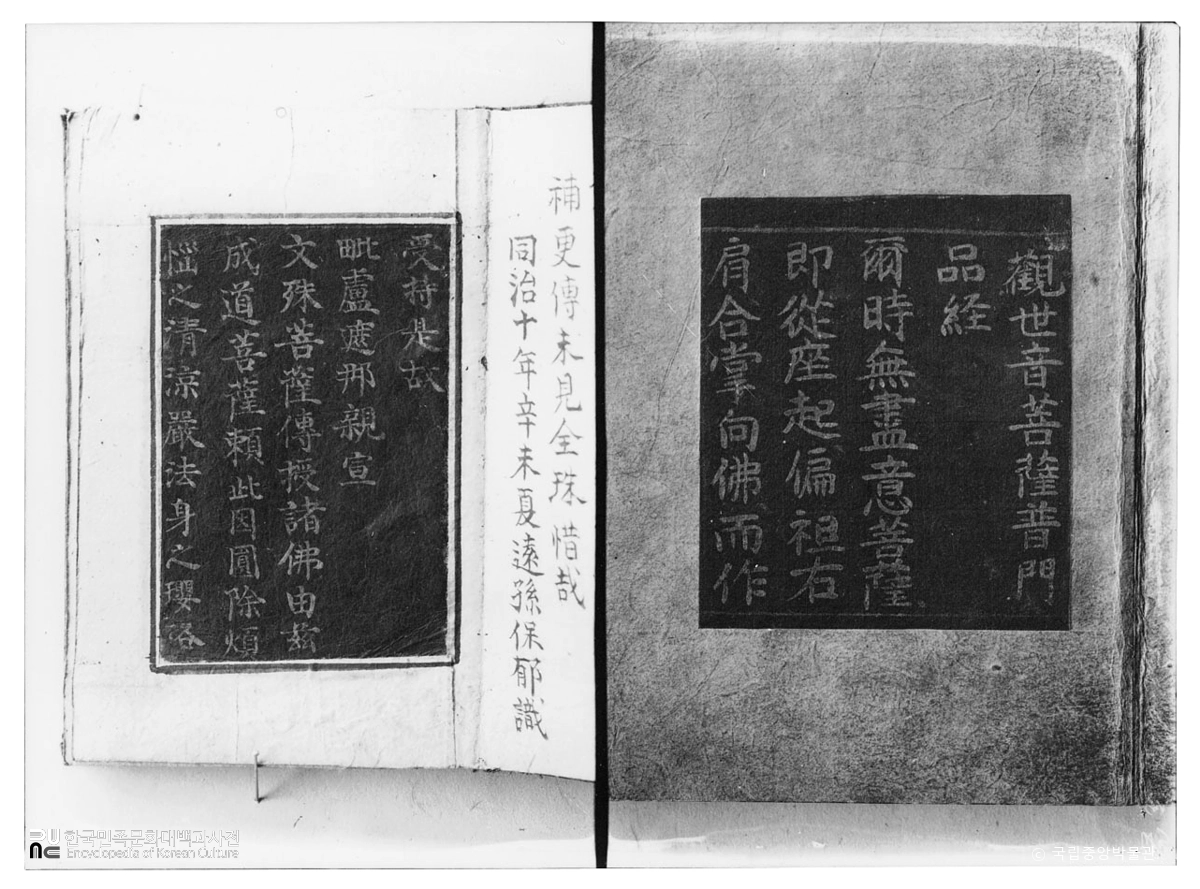 觀世音菩薩普門
品経
爾時無盡意菩薩
即從座起偏袒右
肩合掌向佛而作
補更傳未見全珠惜哉
同治十年辛未夏遠孫保郁識
受持是故
毗盧遮那親宣
文殊菩薩傳授諸佛由茲
成道菩薩賴此因圓除煩
惱之清涼嚴法身之瓔珞
한국민족문화대백과사전
Encyclopedia of Korean Culture
© 국립중앙박물관